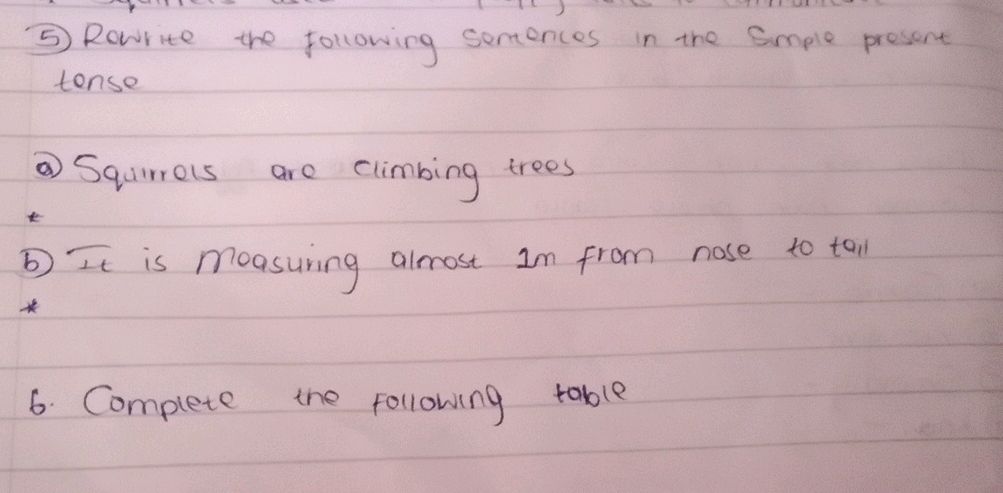 5) Rewrite the following sentences in the simple present
tense
a) Squirrels are climbing trees
*
b) It is measuring almost 1m from nose to tail
*
6. Complete the following table